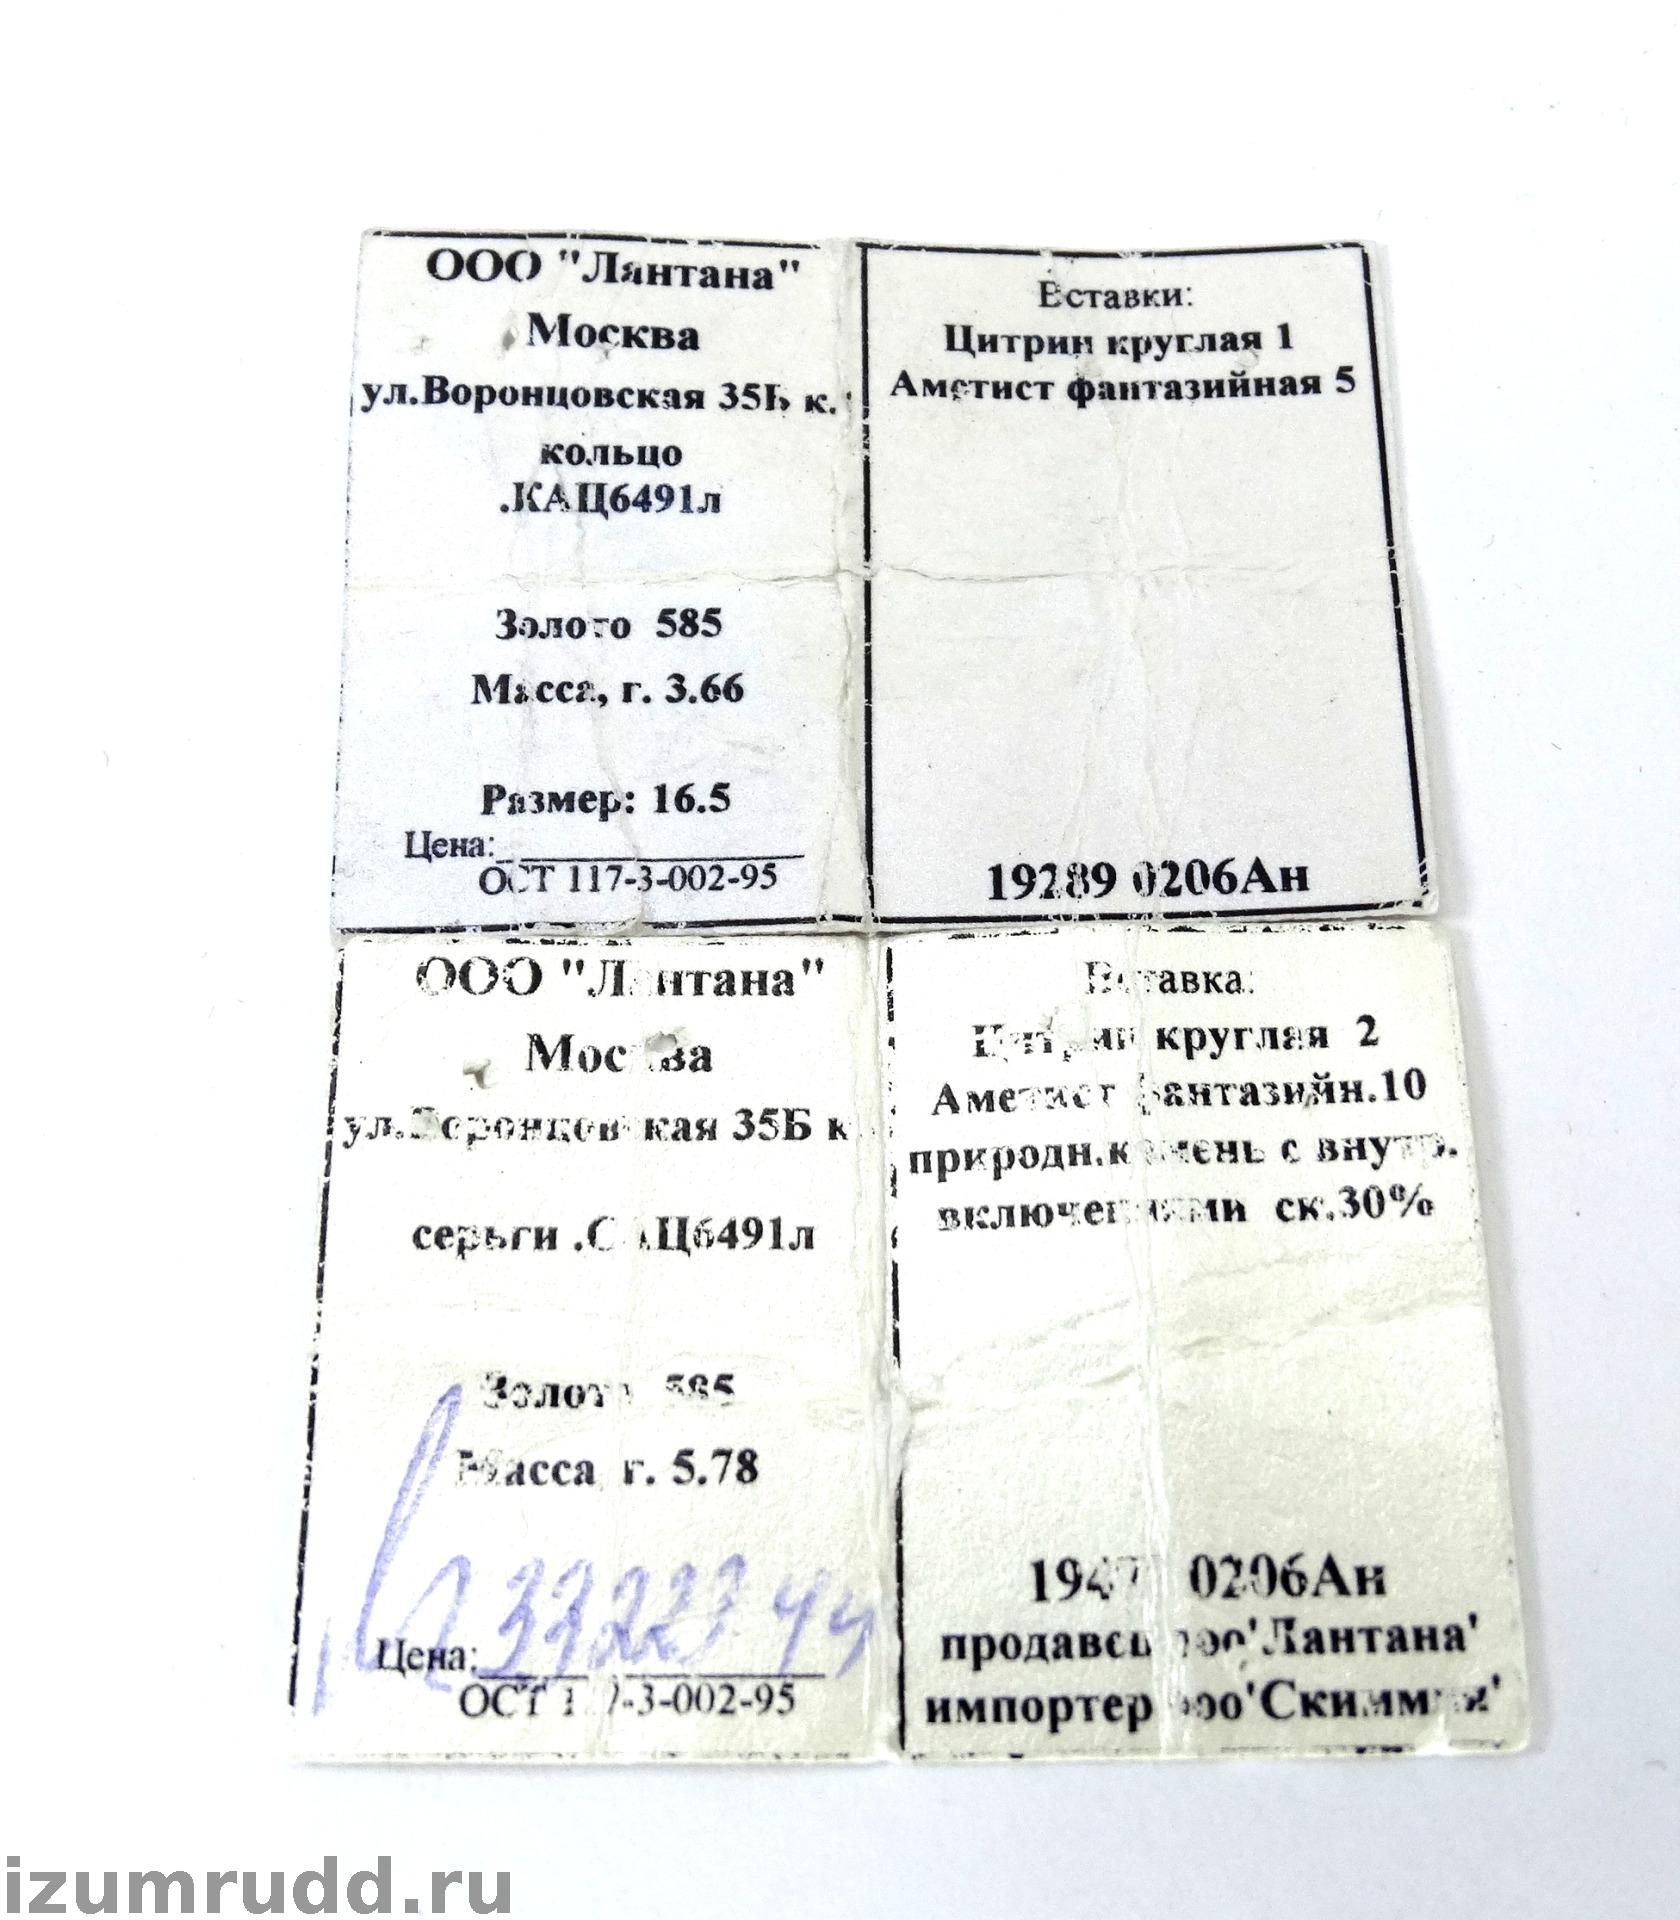 ООО "Лантана"
Москва
ул.Воронцовская 35Б к.
кольцо
.КАЦ6491л
Золото 585
Масса, г. 3.66
Размер: 16.5
Цена:
ОСТ 117-3-002-95
Вставки:
Цитрин круглая 1
Аметист фантазийная 5
19289 0206Ан
ООО "Лантана"
Москва
ул.Воронцовская 35Б к
серьги .САЦ6491л
Золото 585
Масса, г. 5.78
Цена:
ОСТ 117-3-002-95
Вставка:
Цитрин круглая 2
Аметист фантазийн.10
природн.камень с внутр.
включениями ск.30%
0206Ан
продавец ооо'Лантана'
импортер ооо
izumrudd.ru